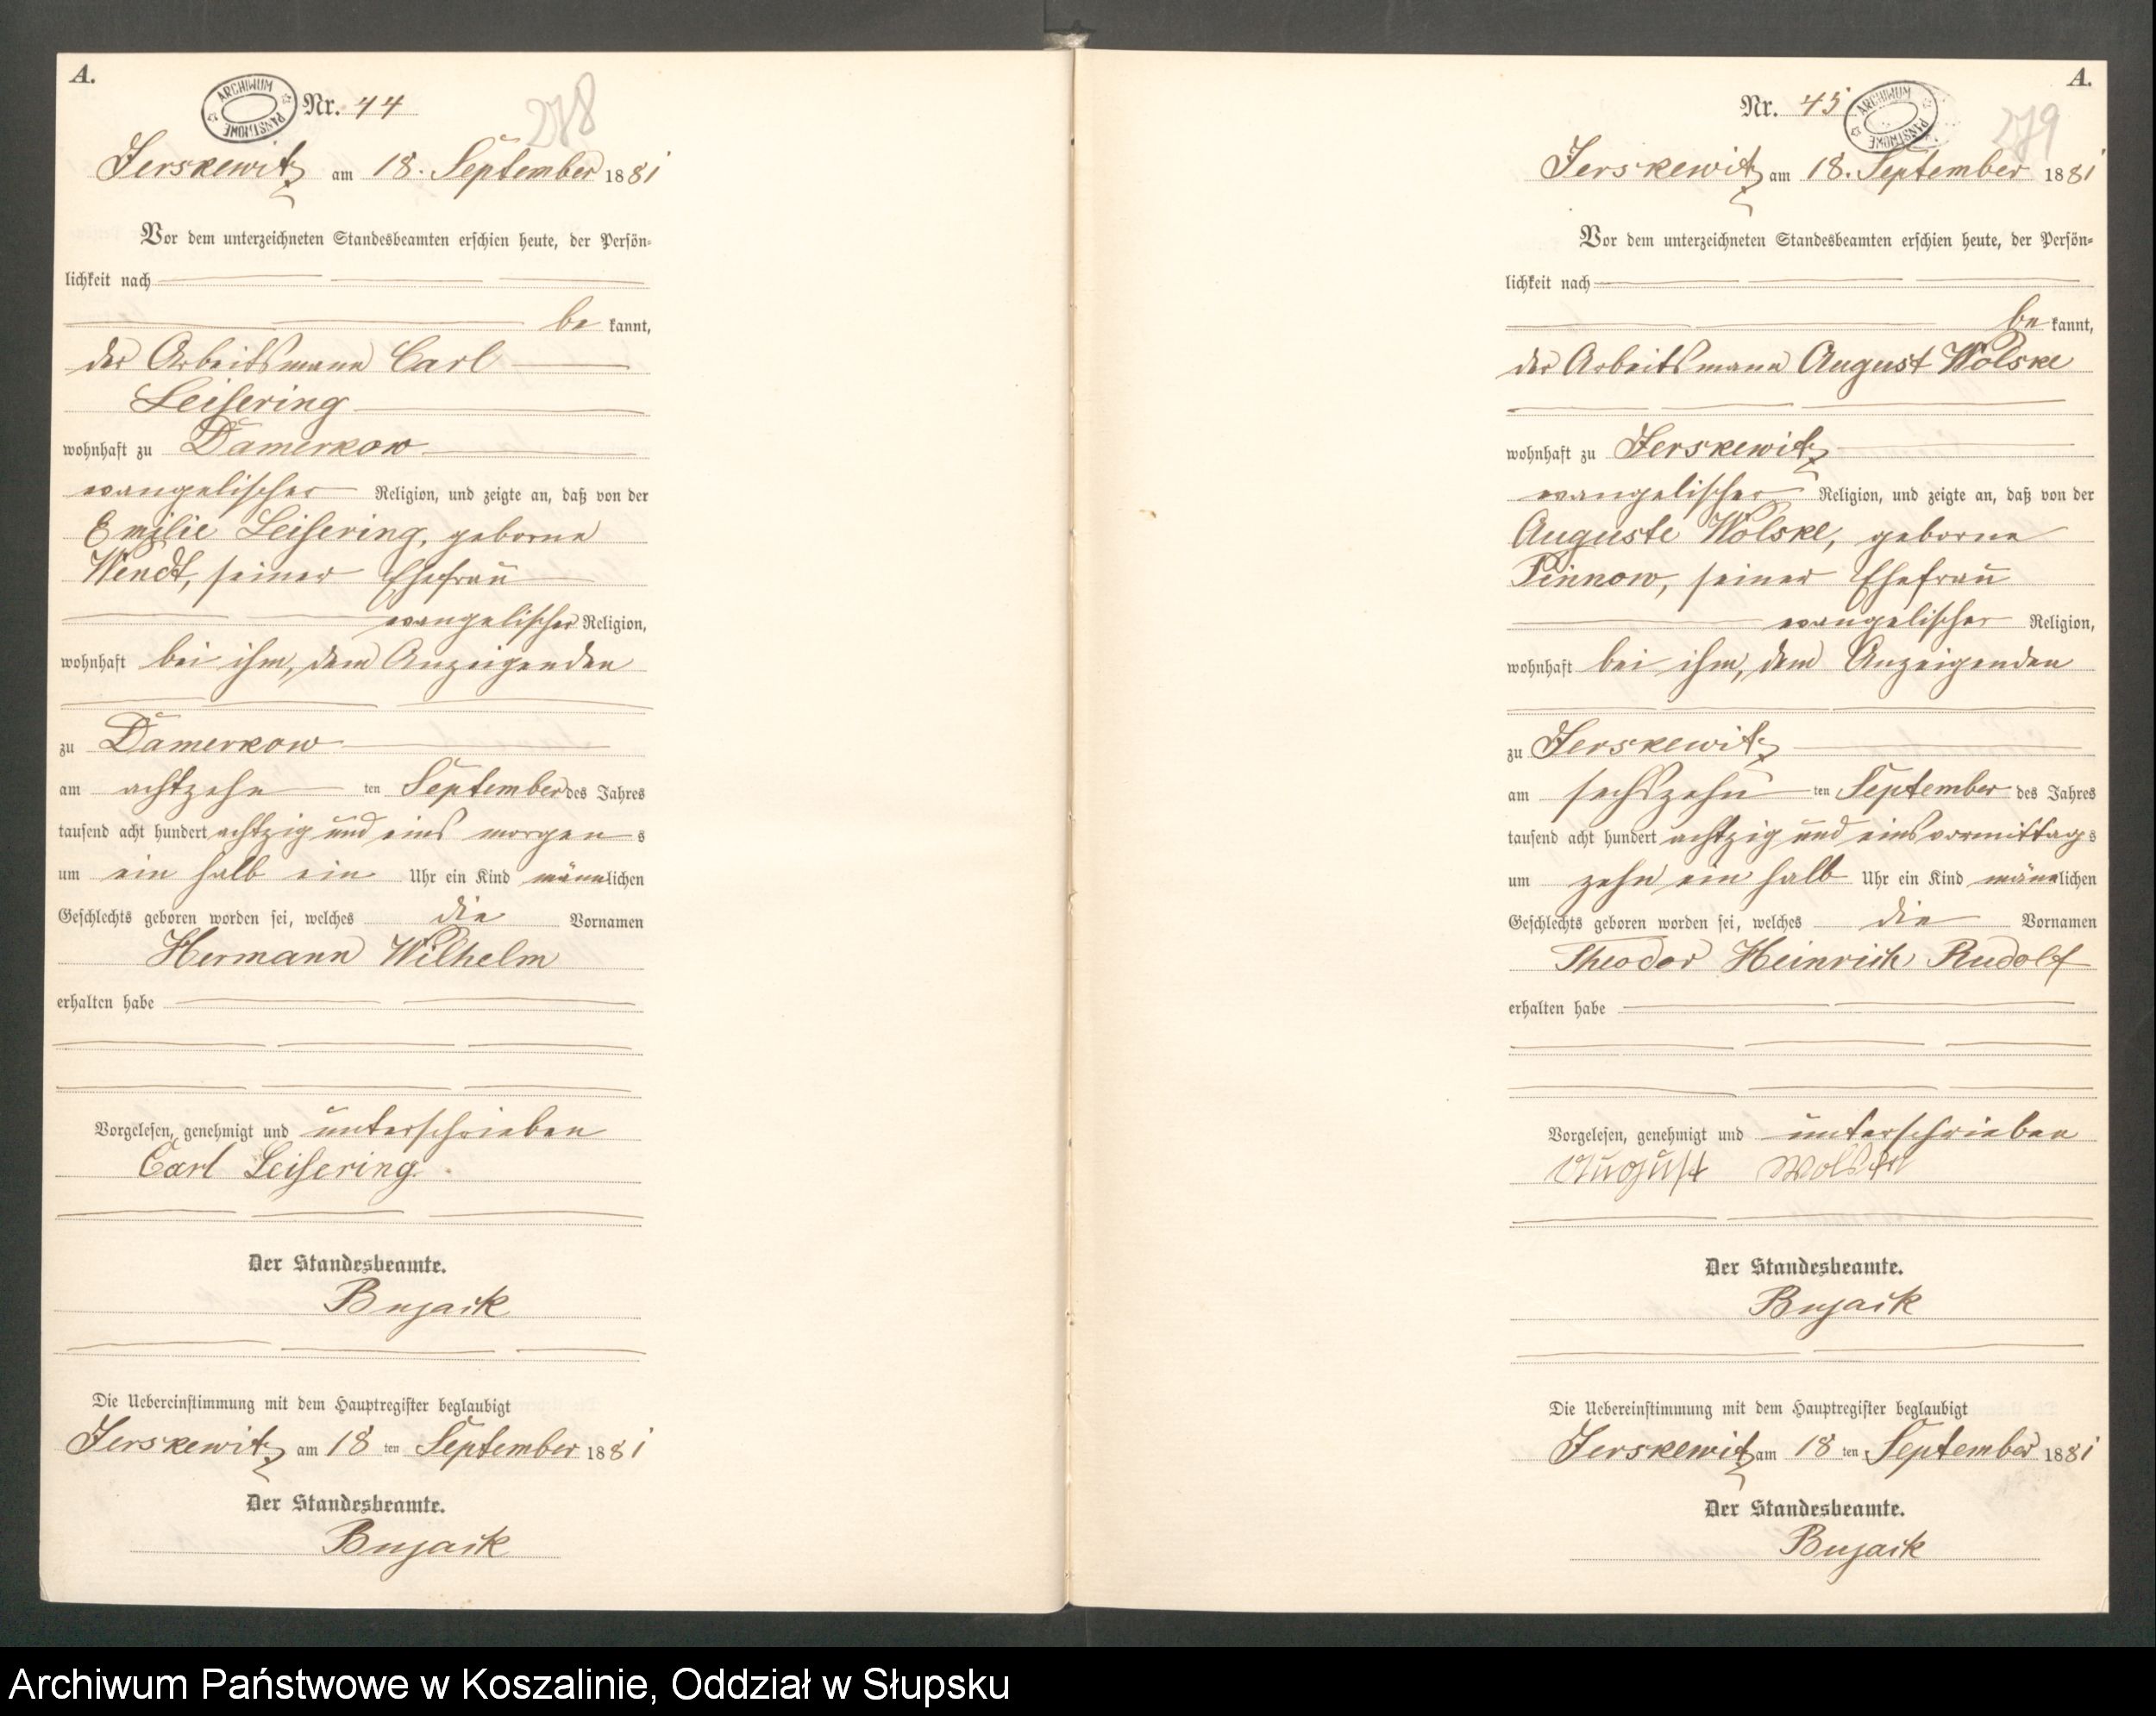 A.
ARCHIWUM PAŃSTWOWE
Nr. 44
278
Jerskewitz am 18. September 1881
Vor dem unterzeichneten Standesbeamten erschien heute, der Persön-
lichkeit nach
be kannt,
der Arbeitsmann Carl
Leisering
wohnhaft zu Damerkow
evangelischer Religion, und zeigte an, daß von der
Emilie Leisering, geborne
Wendt, seiner Ehefrau
evangelischer Religion,
wohnhaft bei ihm, dem Anzeigenden
zu Damerkow
am achtzehn ten September des Jahres
tausend acht hundert achtzig und eins morgen s
um ein halb ein Uhr ein Kind männlichen
Geschlechts geboren worden sei, welches die Vornamen
Hermann Wilhelm
erhalten habe
Vorgelesen, genehmigt und unterschrieben
Carl Leisering.
Der Standesbeamte.
Bujack
Die Uebereinstimmung mit dem Hauptregister beglaubigt
Jerskewitz am 18 ten September 1881
Der Standesbeamte.
Bujack
A.
Nr. 45
ARCHIWUM PAŃSTWOWE
279
Jerskewitz am 18. September 1881
Vor dem unterzeichneten Standesbeamten erschien heute, der Persön-
lichkeit nach
be kannt,
der Arbeitsmann August Wolske
wohnhaft zu Jerskewitz
evangelischer Religion, und zeigte an, daß von der
Auguste Wolske, geborne
Pinnow, seiner Ehefrau
evangelischer Religion,
wohnhaft bei ihm, dem Anzeigenden
zu Jerskewitz
am sechszehn ten September des Jahres
tausend acht hundert achtzig und eins vormittag s
um zehn ein halb Uhr ein Kind männlichen
Geschlechts geboren worden sei, welches die Vornamen
Theodor Heinrich Rudolf
erhalten habe
Vorgelesen, genehmigt und unterschrieben
August Wolske
Der Standesbeamte.
Bujack
Die Uebereinstimmung mit dem Hauptregister beglaubigt
Jerskewitz am 18 ten September 1881
Der Standesbeamte.
Bujack
Archiwum Państwowe w Koszalinie, Oddział w Słupsku